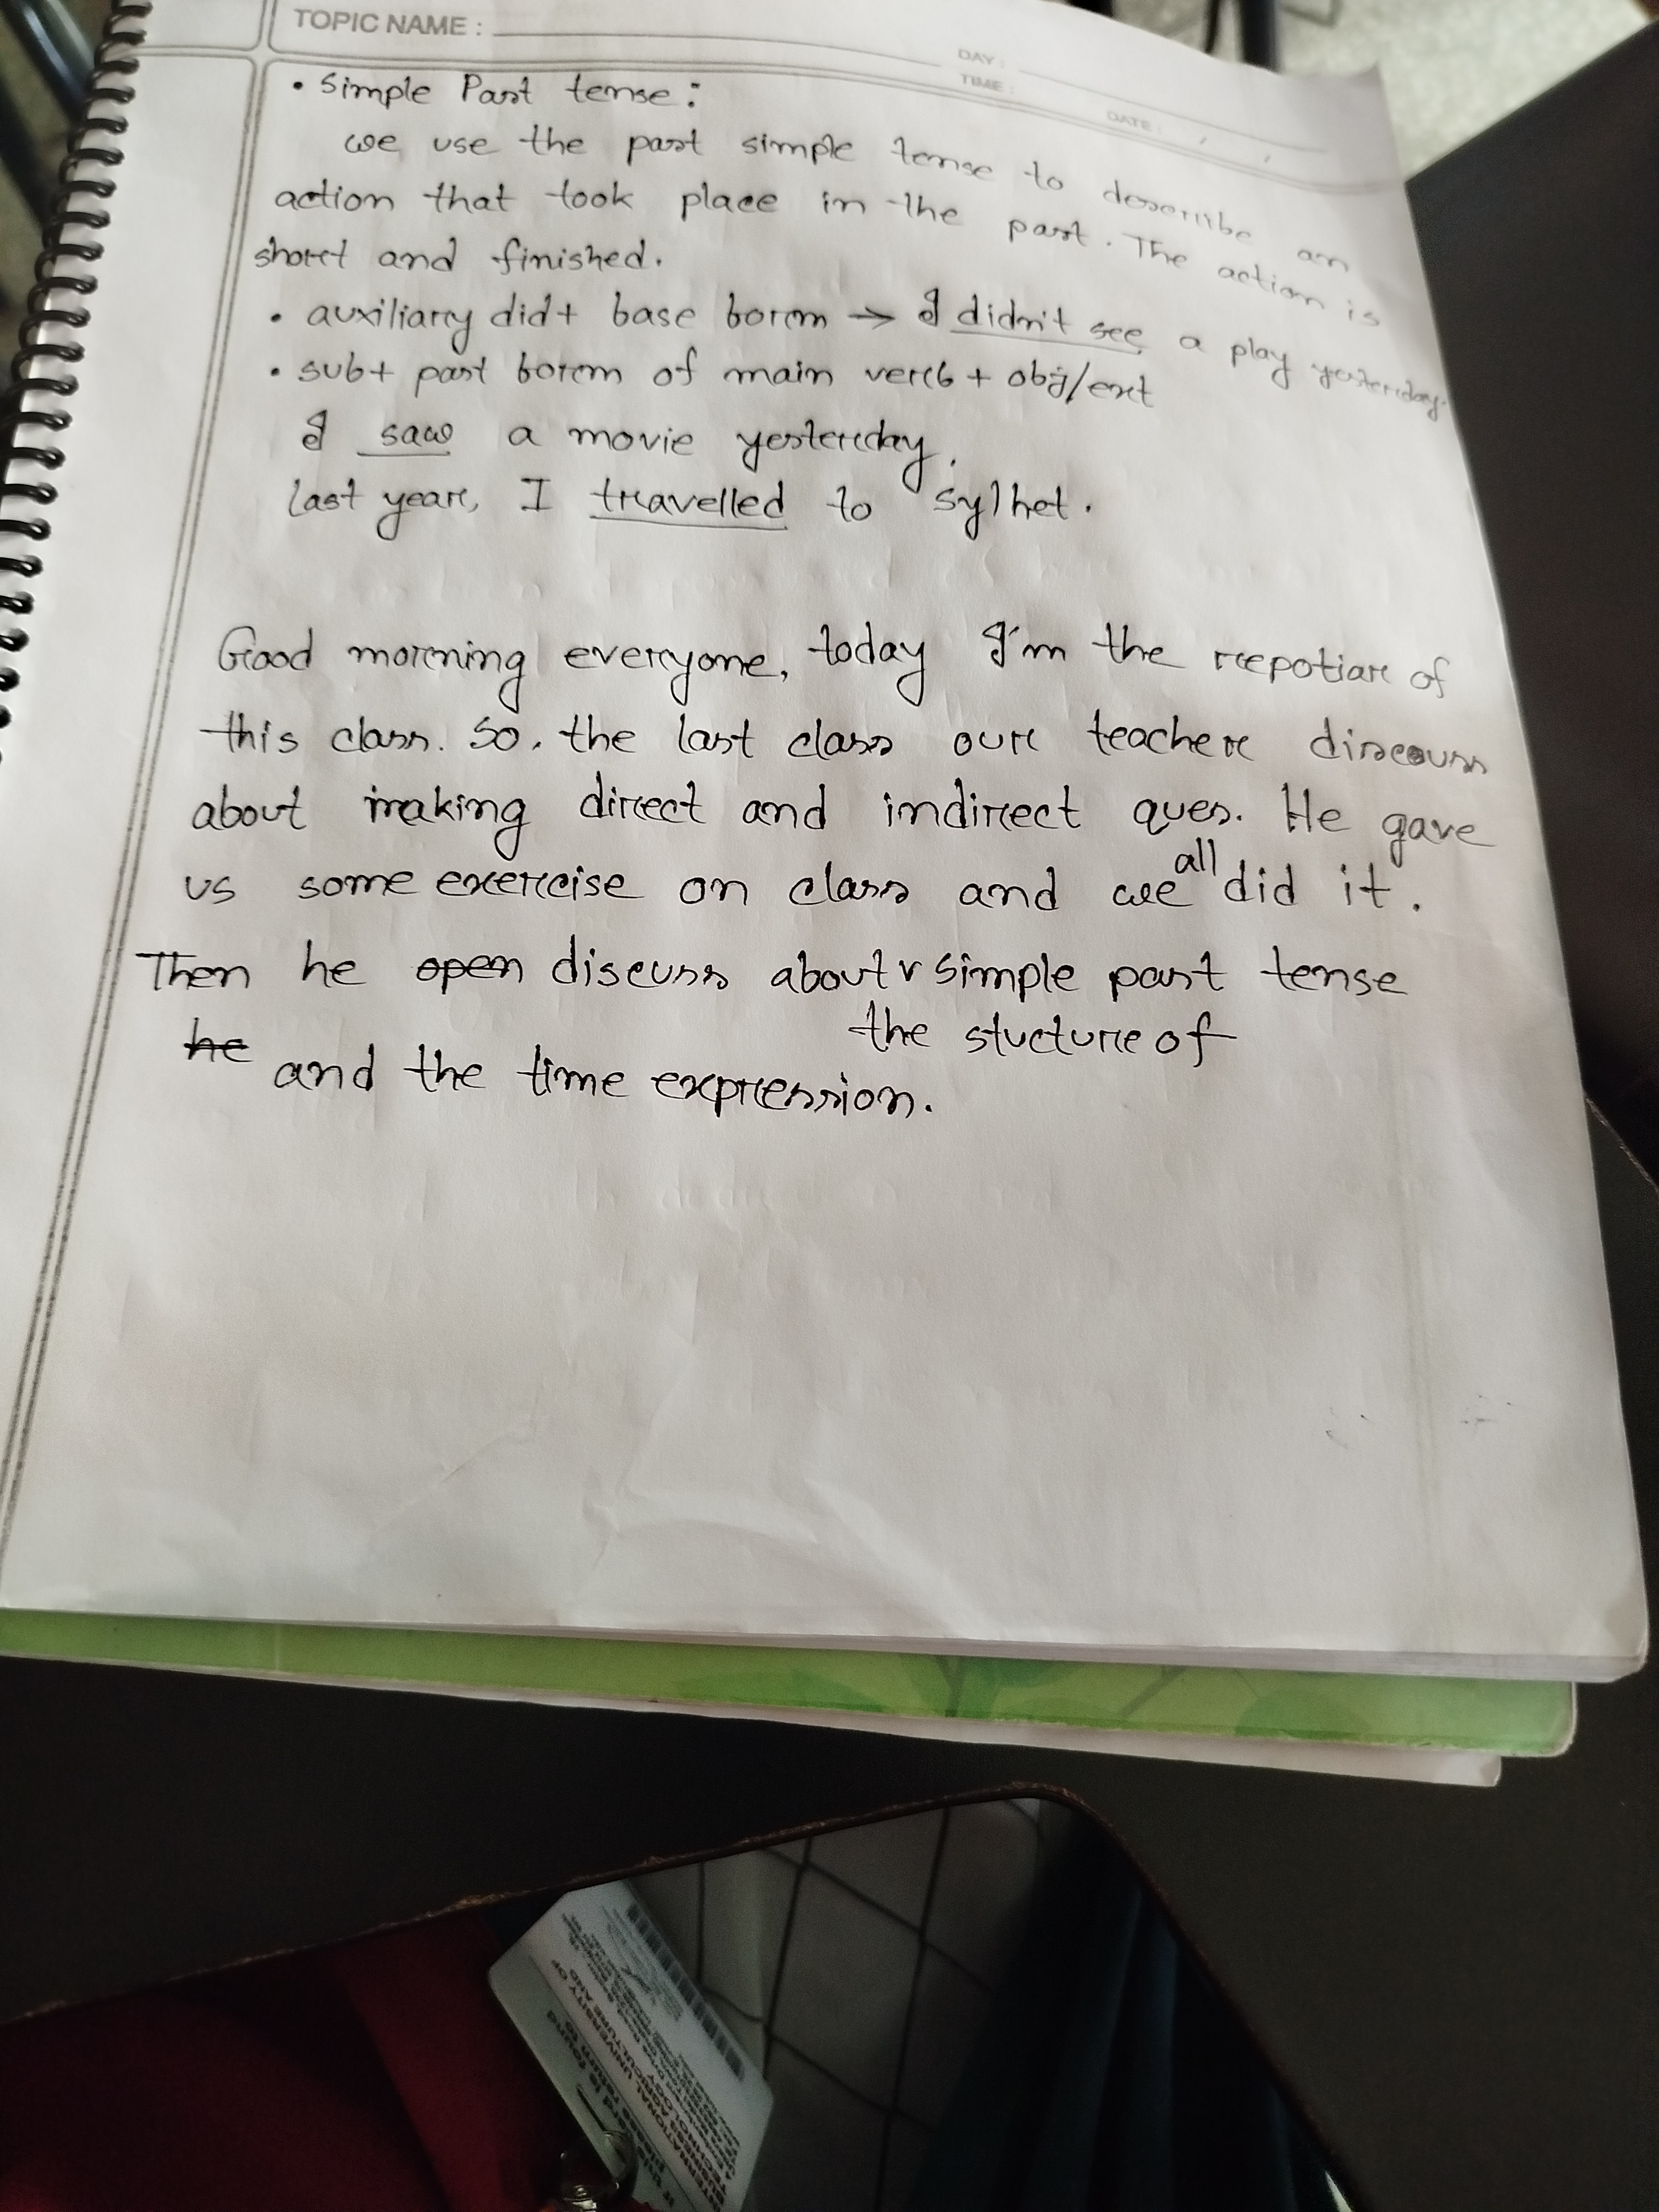 TOPIC NAME :
DAY :
TIME :
DATE : / /
• Simple Past tense:
we use the past simple tense to describe an
action that took place in the past. The action is
short and finished.
• auxiliary did+ base form → I didn't see a play yesterday.
• sub+ past form of main verb + obj/ext
I saw a movie yesterday.
last year, I travelled to sylhet.
Good morning everyone, today I'm the repotiar of
this class. So, the last class our teacher discuss
about making direct and indirect ques. He gave
us some exercise on class and we all did it.
Then he open discuss about the stucture of simple past tense
he and the time expression.